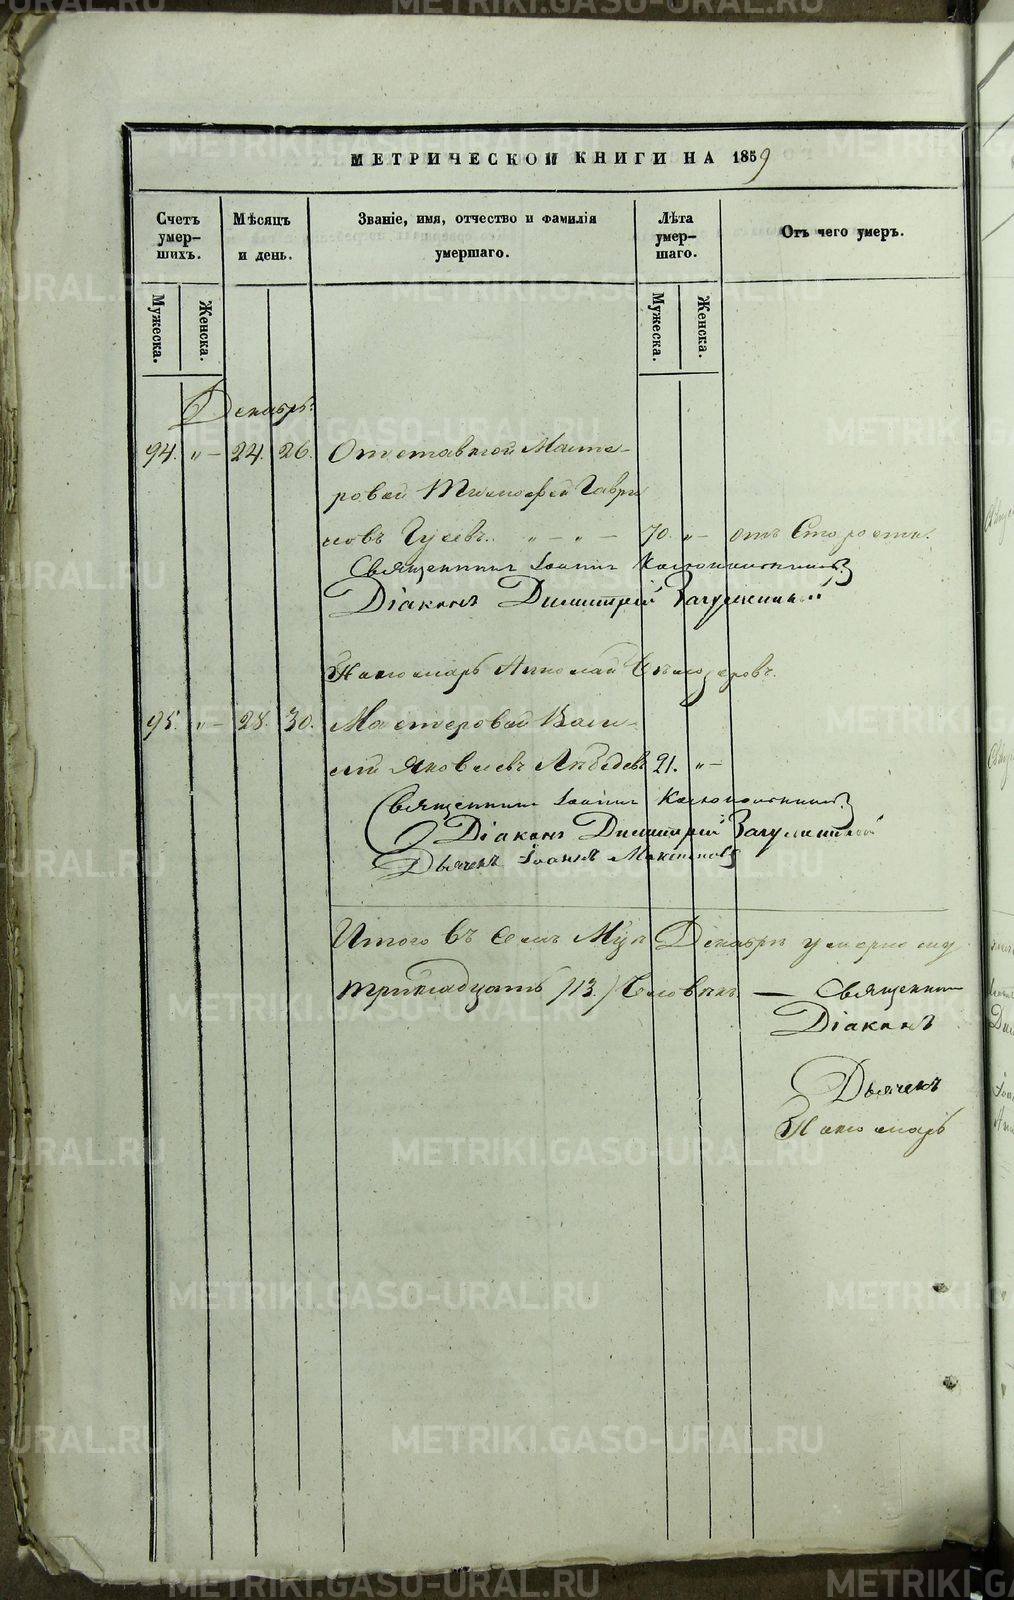 МЕТРИЧЕСКОЙ КНИГИ НА 1859
Счетъ умер-шихъ.
Мѣсяцъ и день.
Званіе, имя, отчество и фамилія умершаго.
Лѣта умер-шаго.
Отъ чего умеръ.
Мужеска.
Женска.
Мужеска.
Женска.
Декабрь.
94. „ – 24. 26. Отставной Масте-
ровой Тимофей Гаври
ловъ Гусевъ. „ – „ – 70. „ – отъ Старости.
Священникъ Іоаннъ
Діаконъ Димитрій
Пономарь Николай
95. „ – 28. 30. Мастеровой Васи-
лій Яковлевъ Лебедевъ 21. „ –
Священникъ Іоаннъ
Діаконъ Димитрій
Дьячекъ Іоаннъ
Итого въ семъ Декабрѣ умерло
тринадцать /13./ Человѣкъ. — Священникъ
Діаконъ
Дьячекъ
Пономарь
METRIKI.GASO-URAL.RU